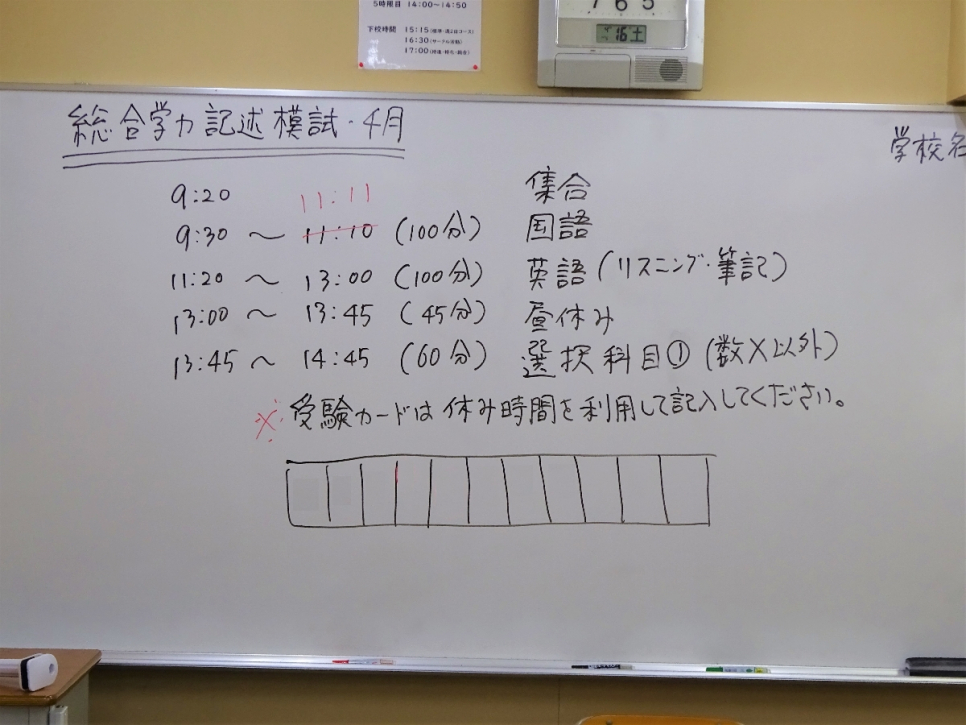 5時限目 14:00～14:50
下校時間 15:15
16:30
17:00
7 6 5
16 土
総合学力記述模試・4月
学校名
9:20 11:11 集合
9:30 ～ 11:10 (100分) 国語
11:20 ～ 13:00 (100分) 英語(リスニング・筆記)
13:00 ～ 13:45 (45分) 昼休み
13:45 ～ 14:45 (60分) 選択科目① (数X以外)
※受験カードは休み時間を利用して記入してください。